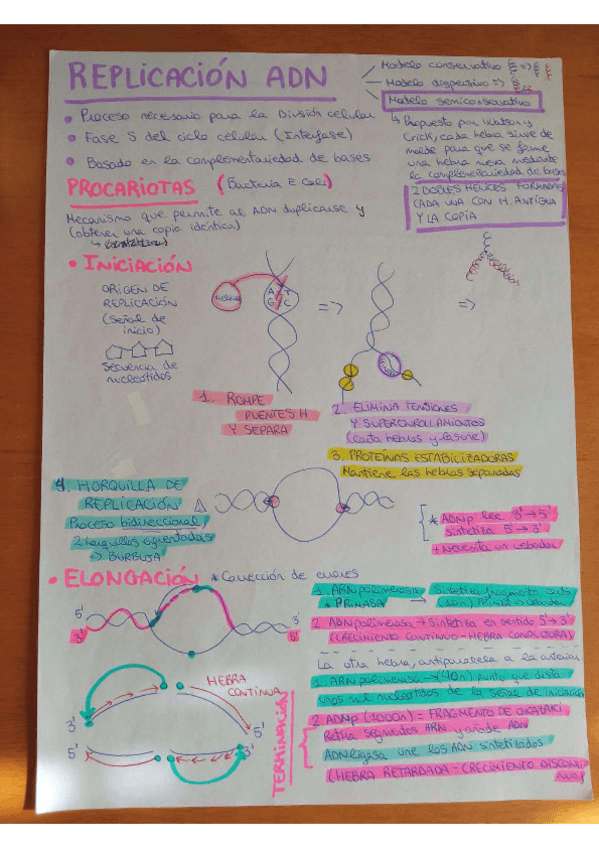 REPLICACIÓN ADN
Modelo conservativo
Modelo dispersivo =>
Modelo semiconservativo
• Proceso necesario para la División celular
• Fase S del ciclo celular (Interfase)
• Basado en la complementariedad de bases
↳ Propuesto por Watson y
Crick, cada hebra sirve de
molde para que se forme
una hebra nueva mediante
la complementariedad de bases
2 DOBLES HÉLICES FORMADAS
CADA UNA CON H. ANTIGUA
Y LA COPIA
PROCARIOTAS (Bacteria E Coli)
Mecanismo que permite al ADN duplicarse y
(obtener una copia idéntica)
• INICIACIÓN
ORIGEN DE
REPLICACIÓN
(Señal de
inicio)
Secuencia de
nucleótidos
A T
G C
=>
=>
1. ROMPE
PUENTES H
Y SEPARA
2. ELIMINA TENSIONES
Y SUPERENROLLAMIENTOS
(corta hebras y fusiona)
3. PROTEINAS ESTABILIZADORAS
Mantiene las hebras separadas
4. HORQUILLA DE
REPLICACIÓN
Proceso bidireccional
2 horquillas enfrentadas
-> BURBUJA
* ADNp lee 3' → 5'
Sintetiza 5' → 3'
+ Necesita un cebador
• ELONGACIÓN * Corrección de errores
5'
3'
3'
5'
1. ARNpolimerasa
* PRIMASA
2. ADNpolimerasa → Sintetiza en sentido 5' → 3'
(CRECIMIENTO CONTINUO - HEBRA CONDUCTORA)
La otra hebra, antiparalela a la anterior
1. ARNpolimerasa → (40n) punto que dista
unos mil nucleótidos de la señal de iniciación
2. ADNp (1000n) = FRAGMENTO DE OKAZAKI
Retira segmentos ARN y añade ADN
ADNligasa une los ADN sintetizados
(HEBRA RETARDADA - CRECIMIENTO DISCONTI
NUO)
HEBRA
CONTINUA
3'
5'
5'
3'
TERMINACIÓN